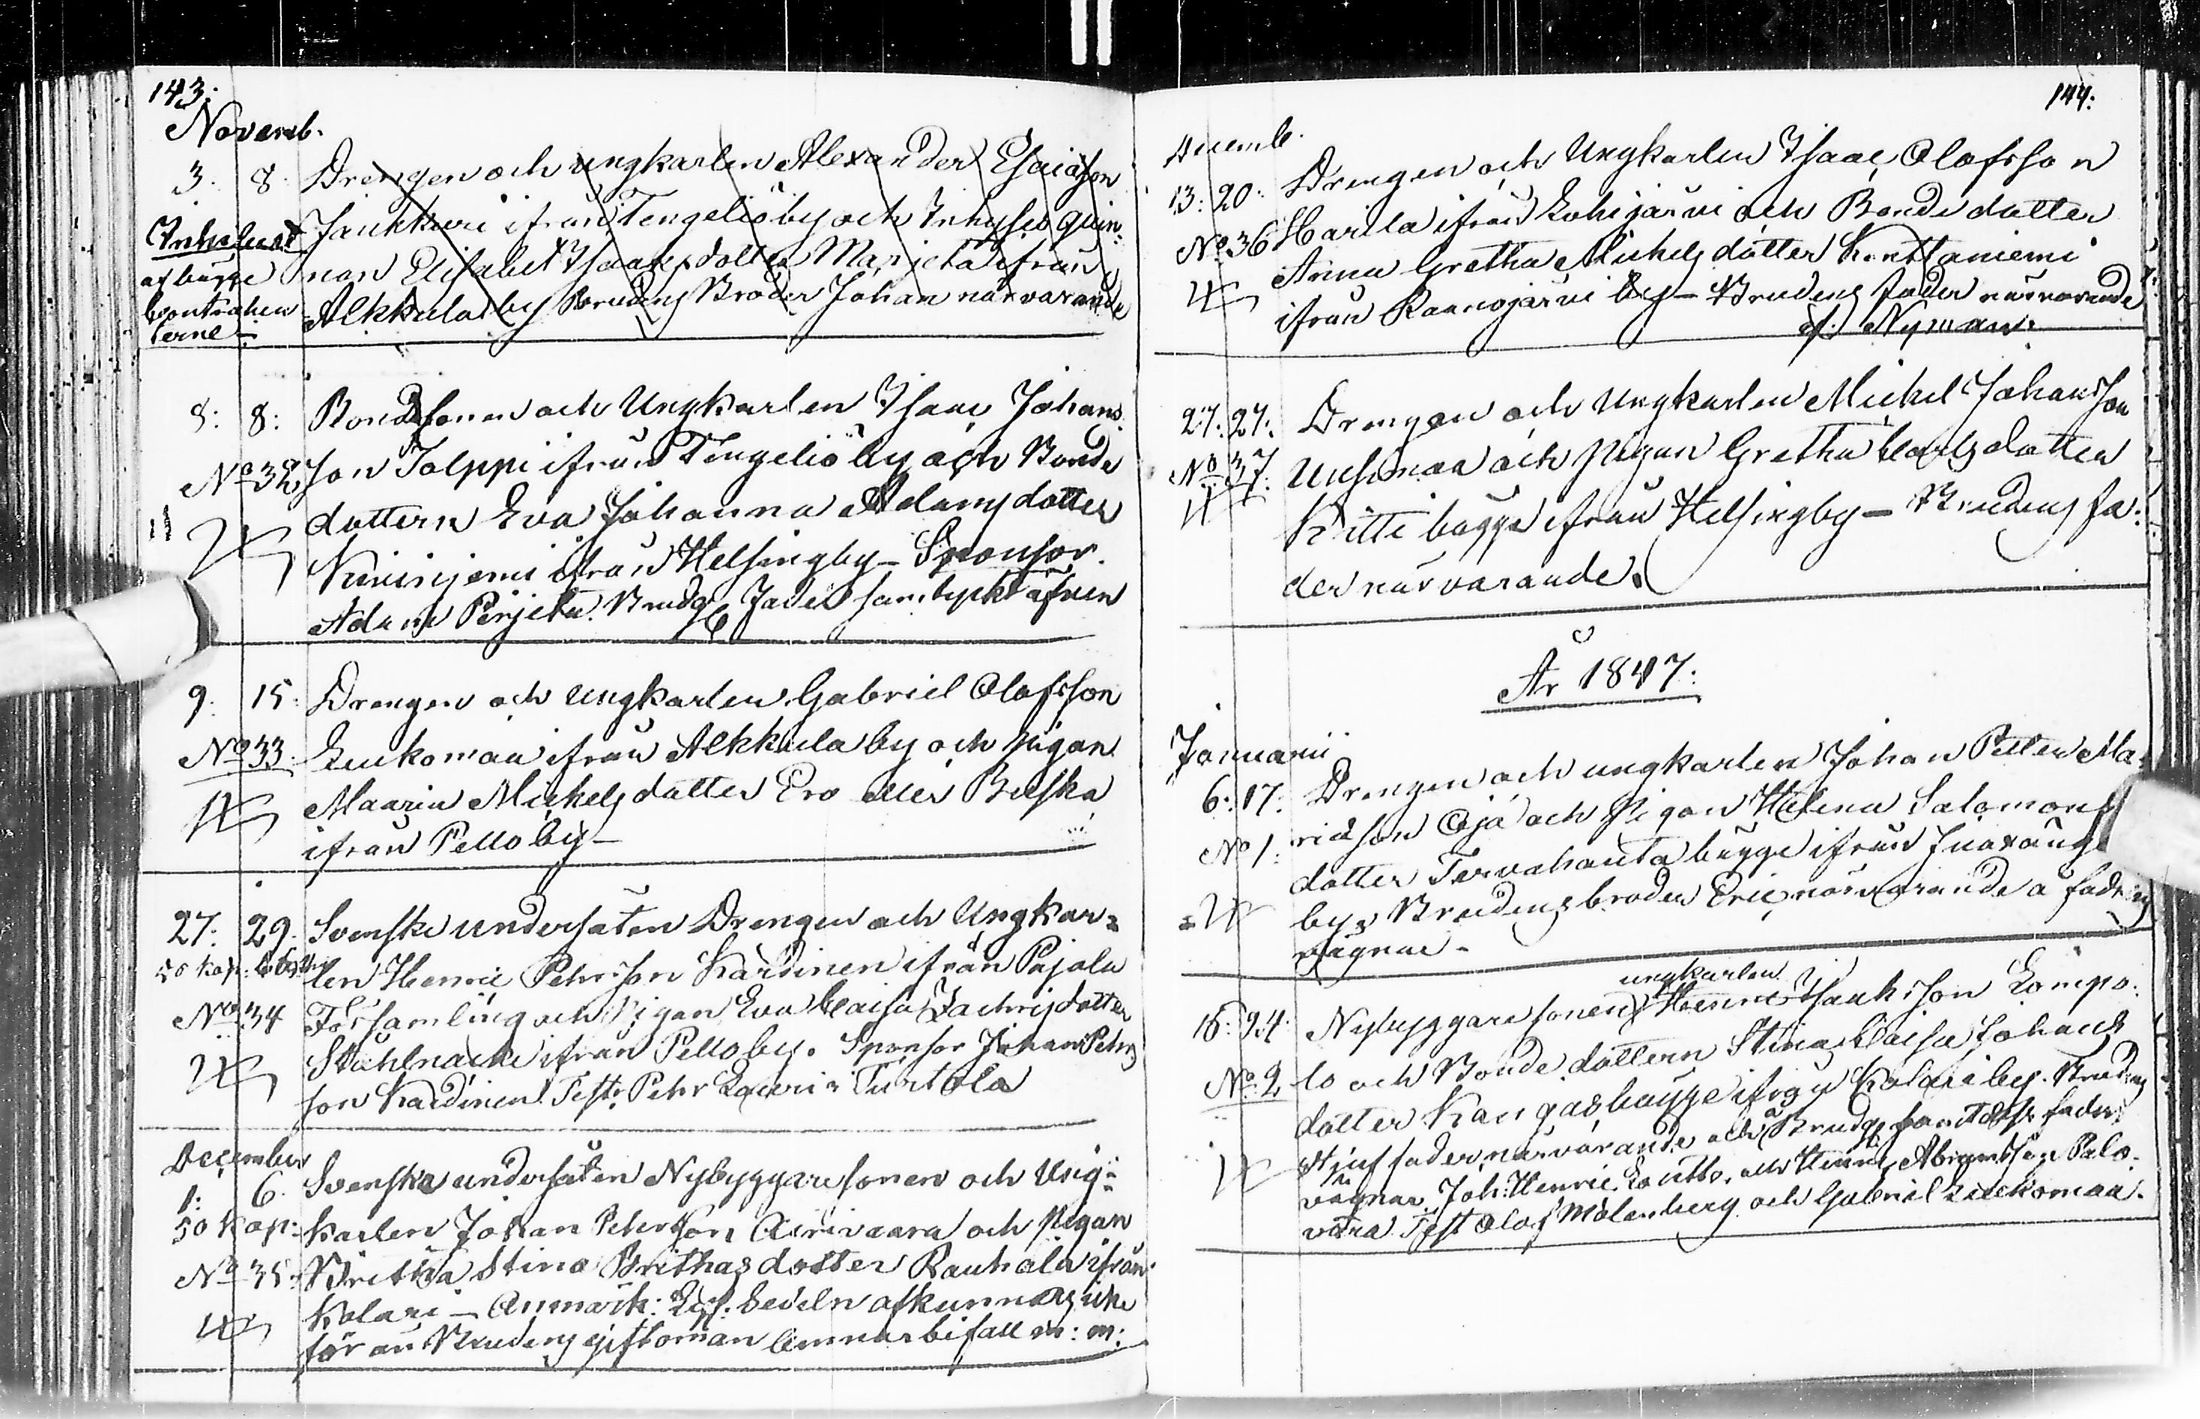 143:
Novemb.
3. 8. Drengen och ungkarlen Alexander Esaiasson
Inhiberat Jankkuri ifrån Tengeliö by och Inhyses quin-
af bägge nan Elisabet Isaaks dotter Marjeta ifrån
Contrahen Alkkula by Brudens Broder Johan närvarande
terne
8: 8: Bondesonen och Ungkarlen Isaac Johans
No 32 son Tolppi ifrån Tengeliö by och Bonde
dottern Eva Johanna Adams dotter
Kiviniemi ifrån Helsingby - Sponsor
Adam Perjeta. Brudg. Fader samtyckt äfven
9: 15: Drengen och Ungkarlen Gabriel Olofsson
No 33 Liukomaa ifrån Alkkula by och pigan
Maaria Michels dotter Ero eller Buska
ifrån Pello by -
27: 29. Svenske undersåten Drengen och Ungkar=
50 kop: len Henric Pehrsson Kardinen ifrån Pajala
No 34 Församling och Pigan Eva Caisa Zachris dotter
Stålnacke ifrån Pello by. Sponsor Johan Pehrs
son Kardinen. Test: Pehr Lauri Turtola
December
1: 6. Svenska undersåten Nybyggaresonen och Ung=
50 kop: karlen Johan Pehrsson Airivaara och pigan
No 35: Britha Stina Brithas dotter Rauhala ifrån
Kolari - Anmärk: Lys. Sedeln afkunnas icke
för än Brudens giftoman lemnar bifall m: m:
144:
Decemb.
13: 20: Drengen och Ungkarlen Isaac Olofsson
No 36 Harila ifrån Lohijärvi och Bonde dotter
Anna Gretha Michels dotter Konttaniemi
ifrån Raanojärvi by - Brudens fader närvarande
Nyman.
27: 27: Drengen och Ungkarlen Michel Johansson
No 37: Uusimaa och Pigan Gretha Carls dotter
Kitti bägge ifrån Helsingby - Brudens fa:
der närvarande.
År 1847:
Januarii
6: 17: Drengen och ungkarlen Johan Petter Ma-
No 1: ridson Oja och Pigan Helena Salomons
dotter Tervahauta bägge ifrån Juoxänge
by, Brudens broder Eric närvarande å faders
vägnar -
ungkarlen
16: 24: Nybyggare sonen Henric Isaksson Lompo:
No 2 lo och Bonde dottern Stina Caisa Johans
dotter Kangas bägge ifrån Kolari by. Brudens
Stjuffader närvarande och Brudg. faders
vägnar Joh: Henric och Henric Abramsson Palo-
vara Test Olof Molenberg och Gabriel Liukomaa.